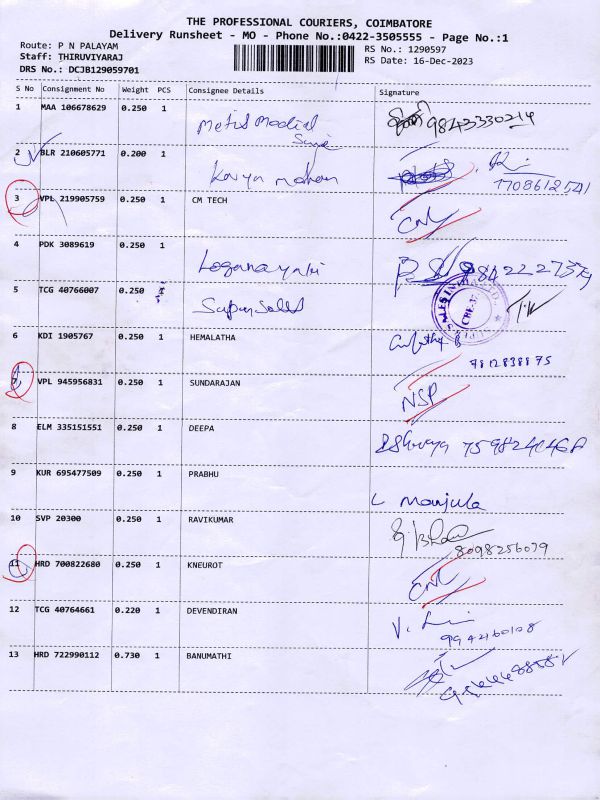 THE PROFESSIONAL COURIERS, COIMBATORE
Delivery Runsheet - MO - Phone No.:0422-3505555 - Page No.:1
Route: P N PALAYAM
RS No.: 1290597
Staff: THIRUVIYARAJ
RS Date: 16-Dec-2023
DRS No.: DCJB129059701
S No Consignment No Weight PCS Consignee Details Signature
1 MAA 106678629 0.250 1 9843330214
2 BLR 210605771 0.200 1
3 VPL 219905759 0.250 1 CM TECH CNL
4 PDK 3089619 0.250 1
5 TCG 40766007 0.250
6 KDI 1905767 0.250 1 HEMALATHA
7812838875
7 VPL 945956831 0.250 1 SUNDARAJAN NSP
8 ELM 335151551 0.250 1 DEEPA
9 KUR 695477509 0.250 1 PRABHU
L Manjula
10 SVP 20300 0.250 1 RAVIKUMAR
8098256079
11 HRD 700822680 0.250 1 KNEUROT CNL
12 TCG 40764661 0.220 1 DEVENDIRAN
9942160108
13 HRD 722990112 0.730 1 BANUMATHI